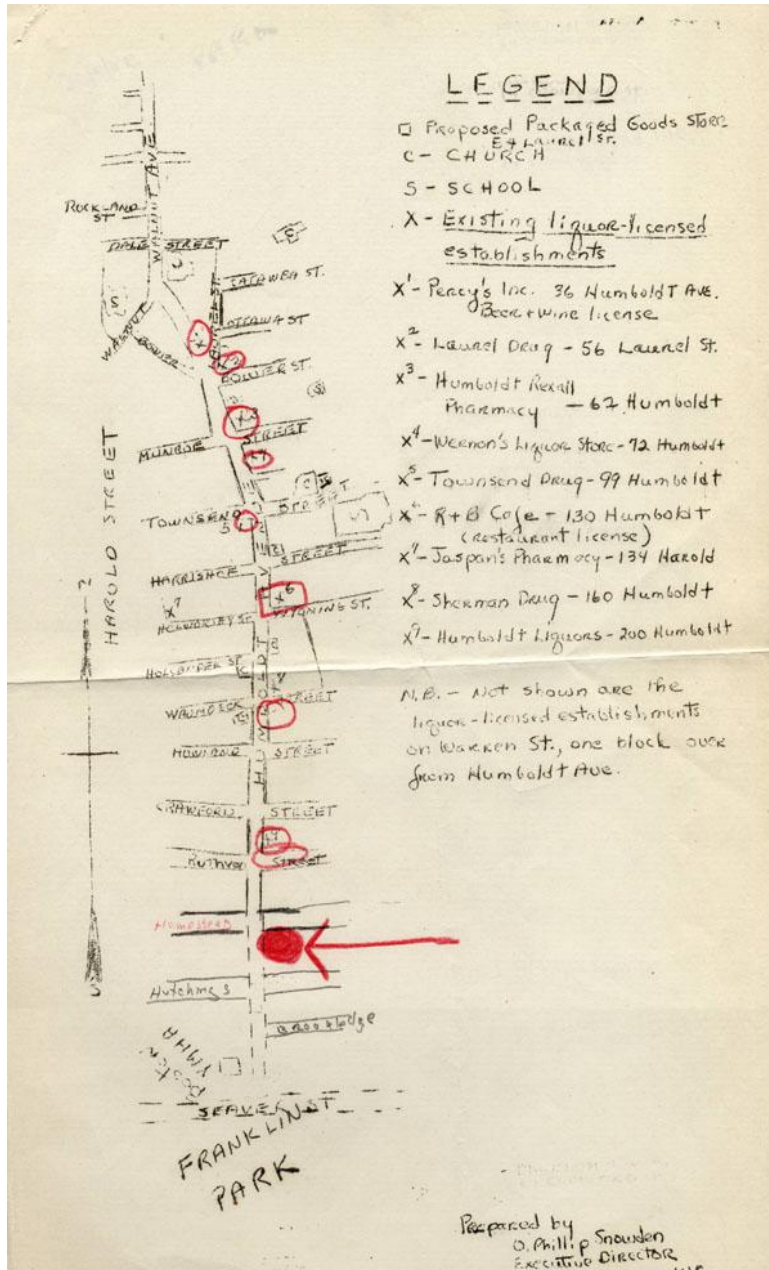 LEGEND
□ Proposed Packaged Goods Store
E 4 Laurel St.
C - CHURCH
S - SCHOOL
X - Existing liquor-licensed
establishments
X1 - Percy's Inc. 36 Humboldt Ave.
Beer + wine license
X2 - Laurel Drug - 56 Laurel St.
X3 - Humboldt Rexall
Pharmacy - 62 Humboldt
X4 - Weenon's Liquor Store - 72 Humboldt
X5 - Townsend Drug - 99 Humboldt
X6 - R+B Cafe - 130 Humboldt
(restaurant license)
X7 - Jaspan's Pharmacy - 134 Harold
X8 - Sherman Drug - 160 Humboldt
X9 - Humboldt Liquors - 200 Humboldt
N.B. - Not shown are the
liquor-licensed establishments
on Warren St., one block over
from Humboldt Ave.
WALNUT AVE.
ROCKLAND
ST
DALE STREET
C
C
S
WALNUT
BOWER
LAUREL ST
CATAWBA ST.
OTTAWA ST
X1
X2
BOWER ST.
S
X3
MUNROE STREET
X4
C
TOWNSEND STREET
5
S
HARRISHOF STREET
HAROLD STREET
X7
X6
HOLWORTHY ST.
WYOMING ST.
HOLLANDER ST.
HUMBOLDT AVE
8
WAUMBECK STREET
HOWLAND STREET
CRAWFORD STREET
X9
RUTHVEN STREET
Homestead
Hutchings
Brookledge
YMHA
SEAVER ST
FRANKLIN
PARK
Prepared by
O. Phillip Snowden
Executive Director